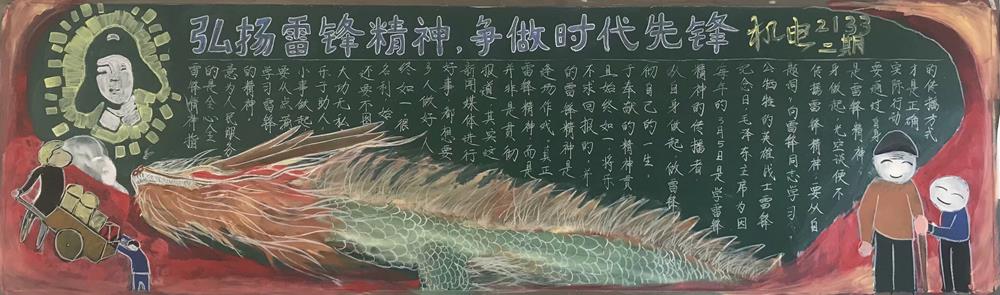 弘扬雷锋精神,争做时代先锋
机电2133
二期
雷锋精神指
的是全心全
意为人民服务
的精神
学习雷锋
要从点滴
小事做起
乐于助人
大功无私
近要不图
名利,始
终如一很
多人做好
好事都想要
新闻媒体进行
报道,其实这
并非是贯彻
雷锋精神,而是
逢场作戏,真正
的雷锋精神是
不求回报的,并
且始终如一,将乐
于奉献的精神贯
彻自己的一生。
从自身做起,做雷锋
精神的传播者
每年的3月5日是学雷锋
纪念日,毛泽东主席为因
公牺牲的英雄战士雷锋
题词:向雷锋同志学习。
传播雷锋精神,要从自
身做起,光空谈便不
是雷锋精神
要通过自身
实际行动
才是正确
的传播方式